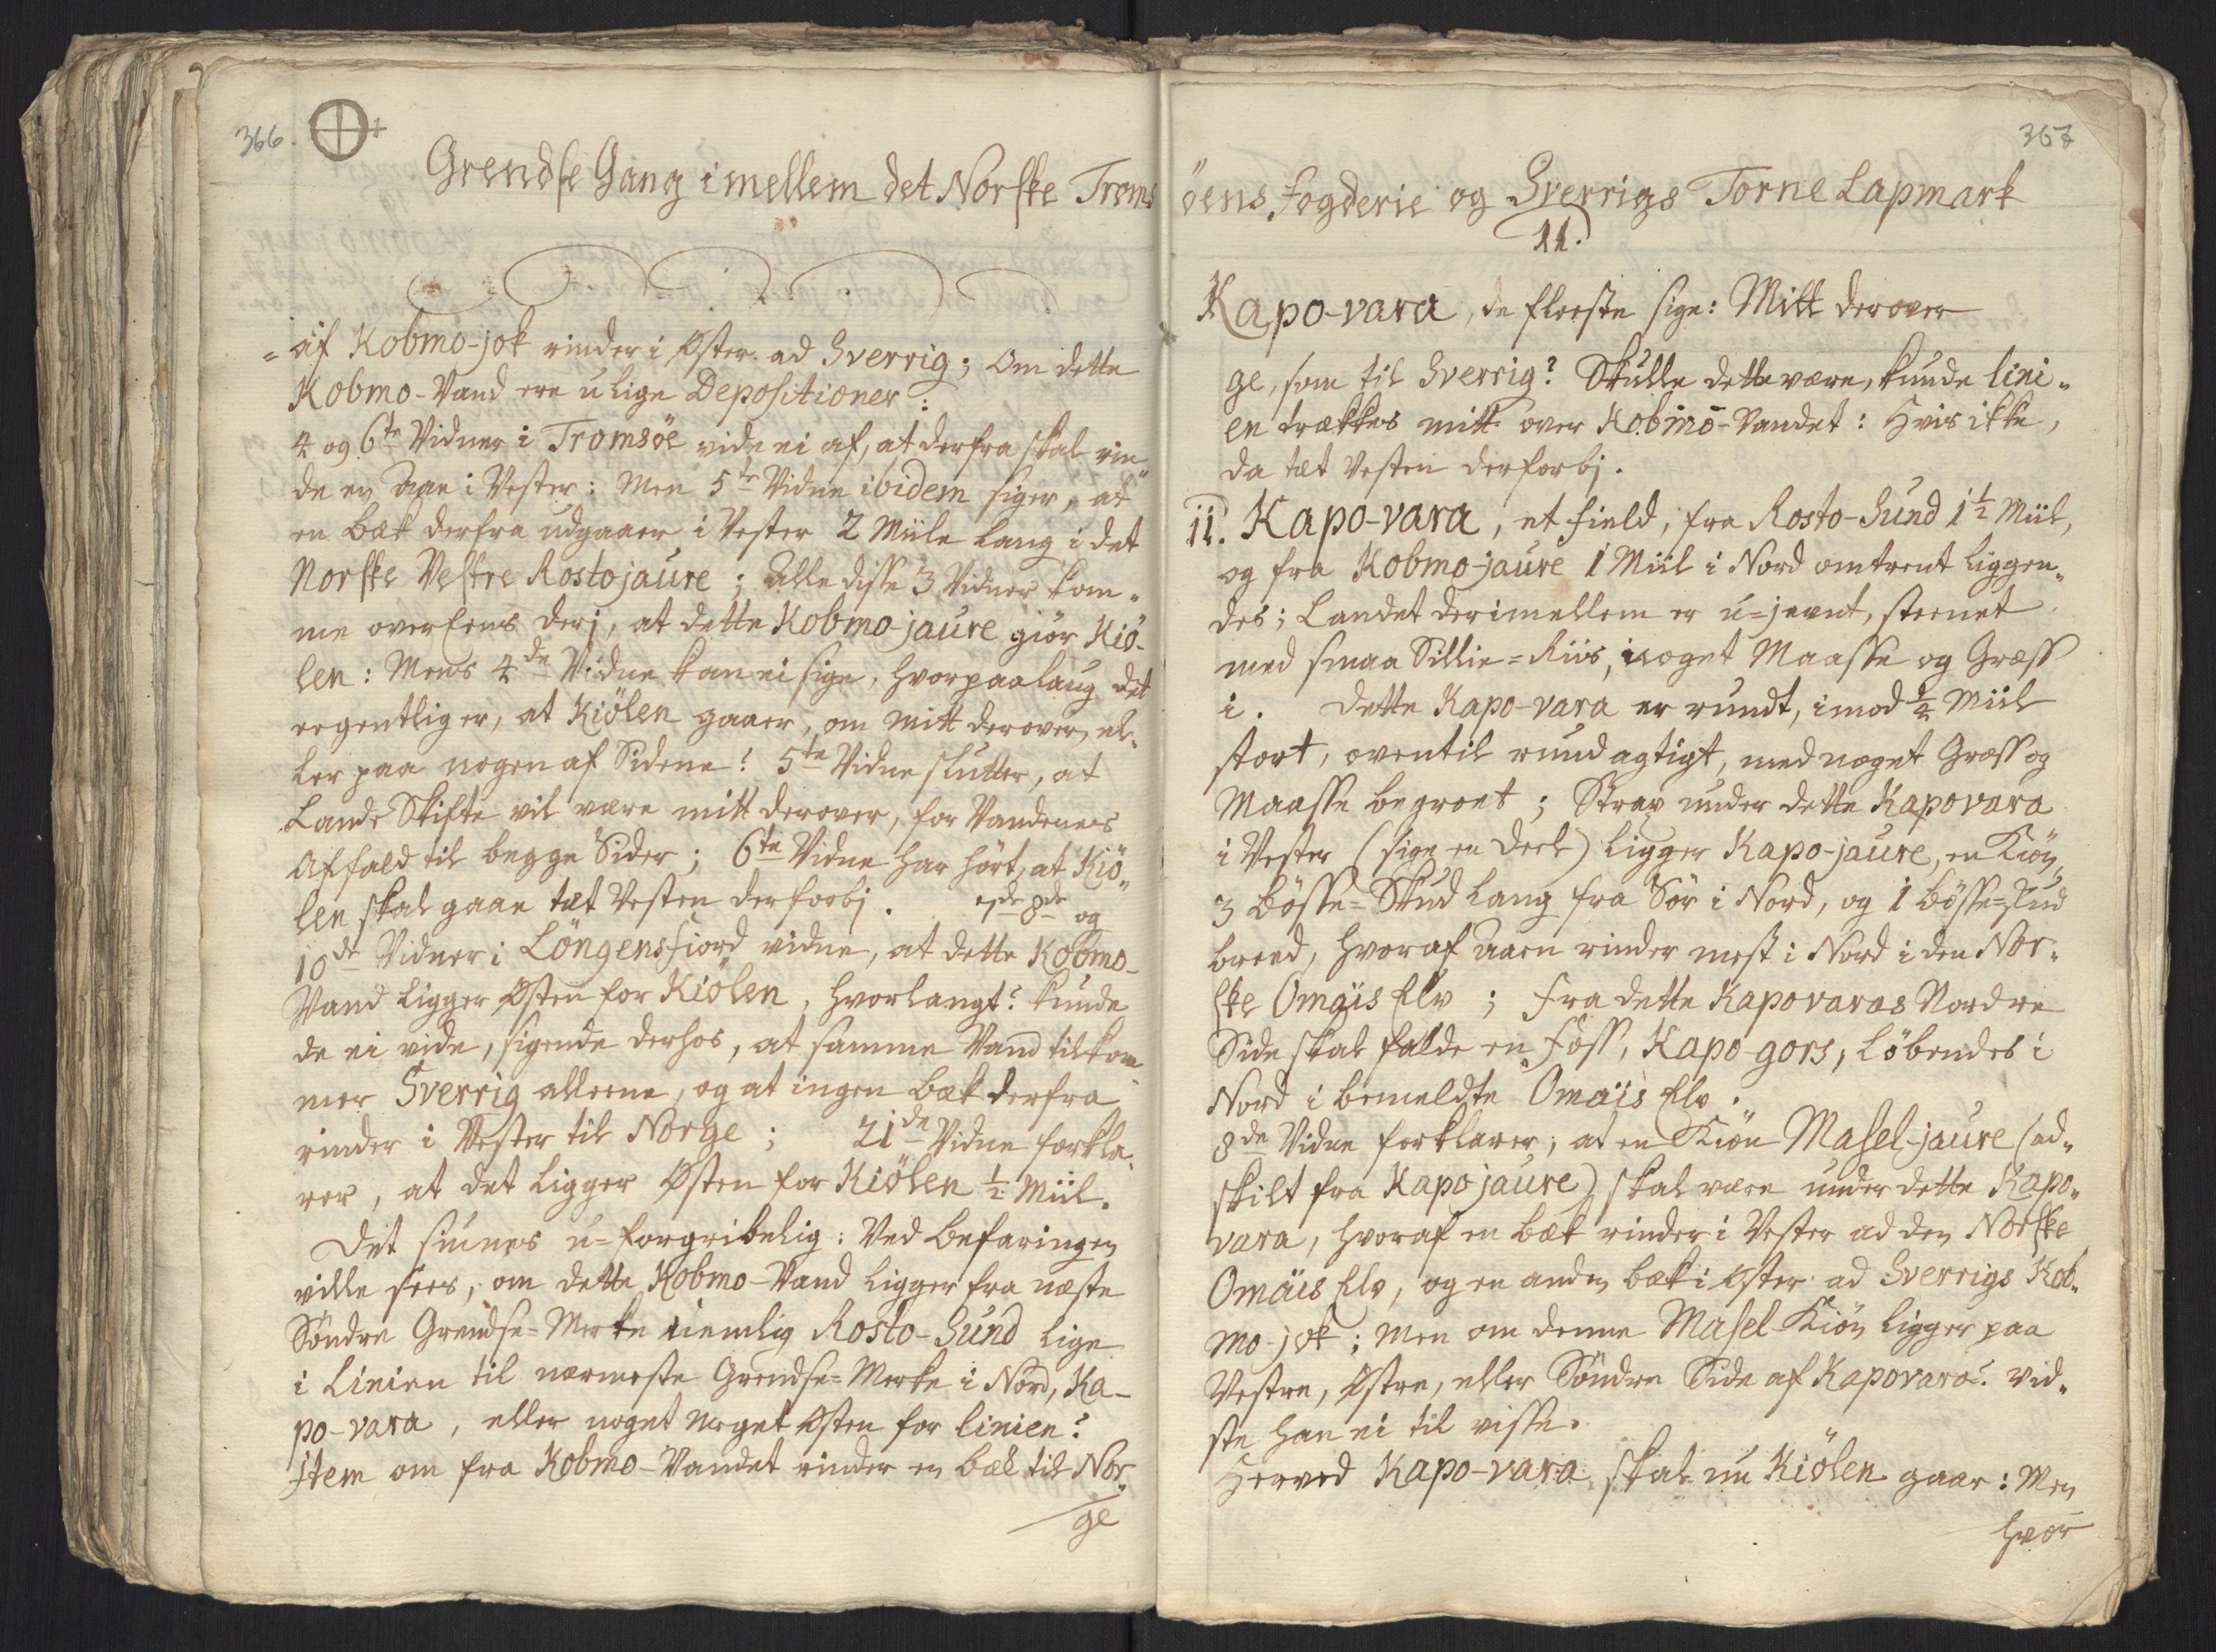 366.
Grendse Gang imellem det Norske Troms
= af Kobmo-jok rinder i Øster ad Sverrig; Om dette
Kobmo-Vand ere u lige Depositioner:
4 og 6te Vidner i Tromsöe vide ei af, at derfra skal rin„
de en Aae i Vester: Men 5te Vidne ibidem siger, at
en Bæk derfra udgaaer i Vester 2 Miile lang i det
Norske Vestre Rostojaure; Alle disse 3 Vidner kom„
me overEens derj, at dette Kobmo-jaure giör Kiö-
len: Mens 4de Vidne kan ei sige, hvorpaalaug det
eegentlig er, at Kiölen gaaer, om mitt derover, el„
ler paa nogen af Sidene? 5te Vidne slutter, at
Lande Skifte vil være mitt derover, for Vandenes
Affald til begge Sider; 6te Vidne har hört, at Kiö„
len skal gaae tæt Vesten derforbj. 7de 8de og
10de Vidner i Löngensfiord vidne, at dette Kobmo-
Vand ligger Østen for Kiölen, hvorlangt? kunde
de ei vide, sigende derhos, at samme Vand tilkom„
mer Sverrig alleene, og at ingen Bæk derfra
rinder i Vester til Norge; 21de Vidne forkla„
rer, at det ligger Østen for Kiölen ½ Miil.
Det siunes u=forgribelig: Ved Befaringen
ville sees, om dette Kobmo-Vand ligger fra næste
Söndre Grendse=Merke nemlig Rosto-Sund lige
i Linien til nærmeste Grendse=Merke i Nord, Ka-
po-vara, eller noget meget Østen for linien?
jtem om fra Kobmo-Vandet rinder en Bæk til Nor„
ge
367
öens Fogderie og Sverrigs Torne Lapmark
11.
Kapo-vara, de fleeste sige: Mitt derover
ge, som til Sverrig? Skulle dette være, kunde lini„
en trækkes mitt over Kobmo-Vandet: Hvis ikke,
da tæt Vesten derforbj.
11. Kapo-vara, et Field, fra Rosto-Sund 1½ Miil,
og fra Kobmo-jaure 1 Miil i Nord omtrent liggen„
des; Landet derimellem er u=jævnt, steenet
med smaa Sillie=Riis, noget Maasse og Græss
i. Dette Kapo-vara er rundt, imod ½ Miil
stort, oventil rundagtigt, med noget Græss og
Maasse begroet; Strax under dette Kapovara
i Vester (sige en Deel) ligger Kapo-jaure, en Kiön,
3 Bösse=Skud lang fra Sör i Nord, og 1 Bösse=skud
breed, hvoraf Aaen rinder mest i Nord i den Nor„
ske Omäis Elv; Fra dette Kapovaras Nordre
Side skal falde en Foss, Kapo-gors, löbendes i
Nord i bemeldte Omäis Elv.
8de Vidne forklarer, at en Kiön Masel-jaure (ad„
skilt fra Kapojaure) skal være under dette Kapo„
vara, hvoraf en Bæk rinder i Vester ad den Norske
Omäis Elv, og en anden Bæk i Øster ad Sverrigs Kob„
mo-jok; men om denne Masel-Kiön ligger paa
Vestre, Østre, eller Söndre Side af Kapovara? vid„
ste han ei til visse.
Herved Kapo-vara skal nu Kiölen gaar: Men
hvor